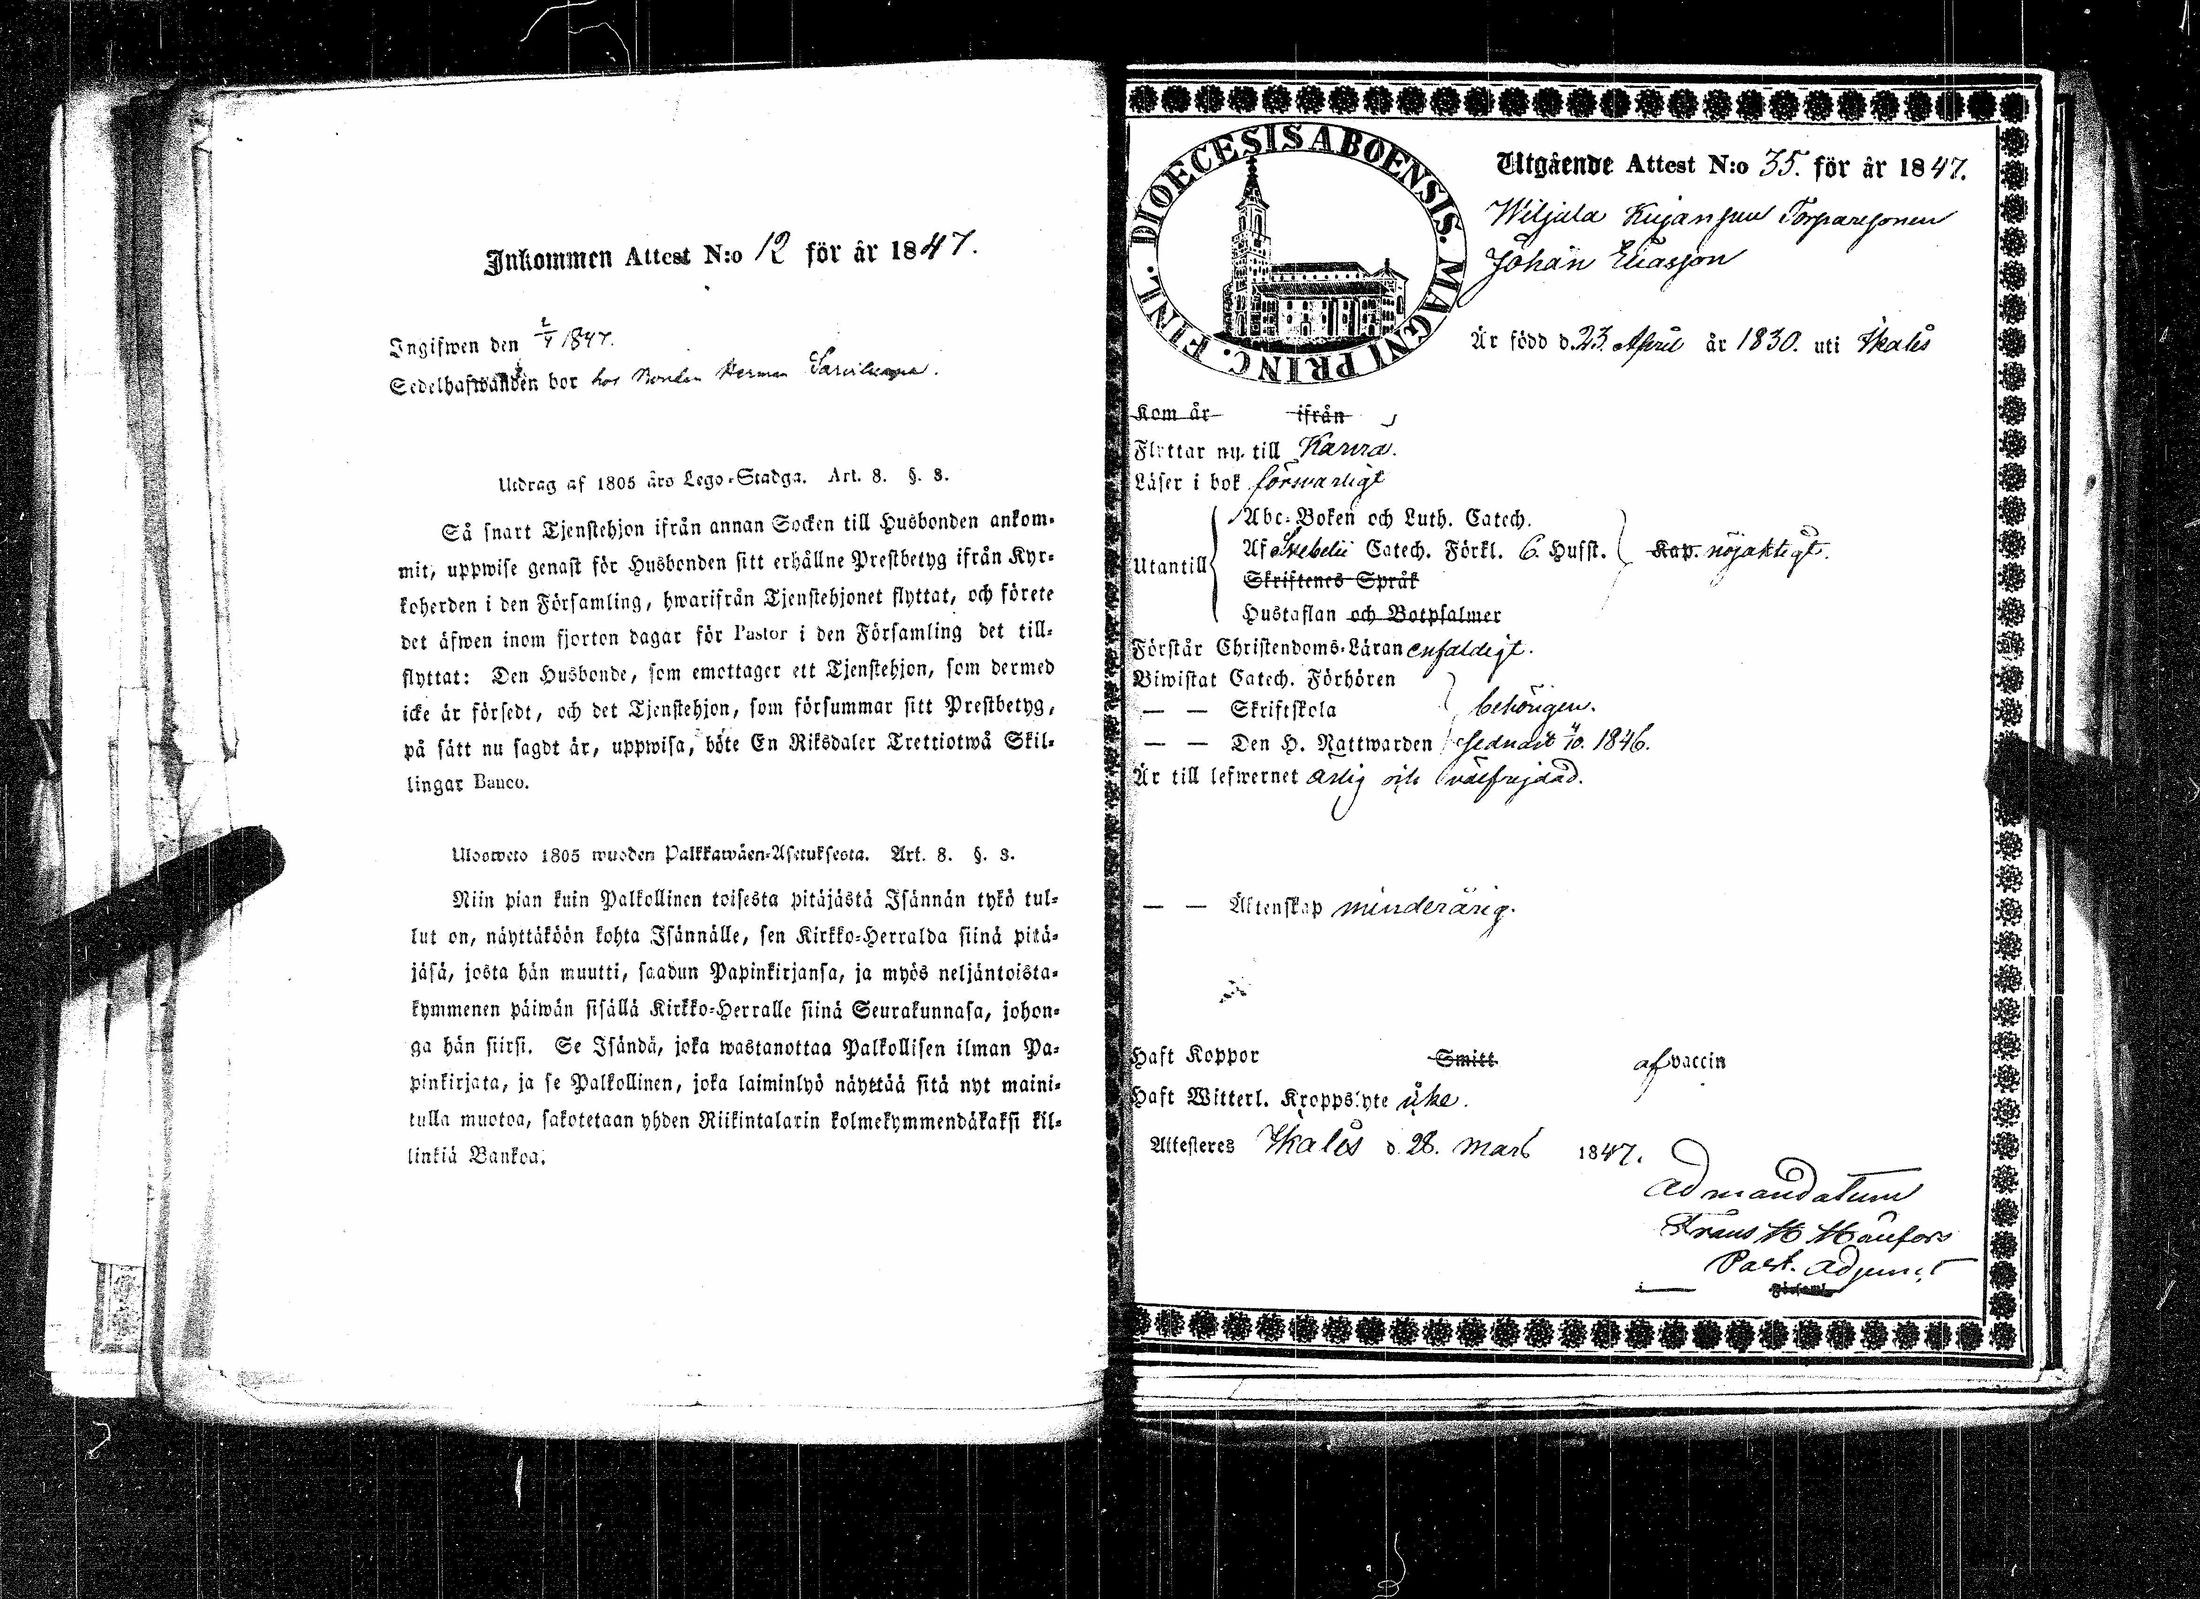 Inkommen Attest N:o 12 för år 1847.
Ingifwen den 2/4 1847.
Sedelhafwanden bor hos Bonden Herman
Utdrag af 1805 års Lego-Stadga. Art. 8. §. 8.
Så snart Tjenstehjon ifrån annan Socken till Husbonden ankom-
mit, uppwise genast för Husbonden sitt erhållne Prestbetyg ifrån Kyr-
koherden i den Församling, hwarifrån Tjenstehjonet flyttat, och förete
det äfwen inom fjorton dagar för Pastor i den Församling det till-
flyttat: Den Husbonde, som emottager ett Tjenstehjon, som dermed
icke är försedt, och det Tjenstehjon, som försummar sitt Prestbetyg,
på sätt nu sagdt är, uppwisa, böte En Riksdaler Trettiotwå Skil-
lingar Banco.
Ulosweto 1805 wuoden Palkkawäen-Asetuksesta. Art. 8. §. 8.
Niin pian kuin Palkollinen toisesta pitäjästä Isännän tykö tul-
lut on, näyttäköön kohta Isännälle, sen Kirkko-Herralda siinä pitä-
jäsä, josta hän muutti, saadun Papinkirjansa, ja myös neljäntoista-
kymmenen päiwän sisällä Kirkko-Herralle siinä Seurakunnasa, johon-
ga hän siirsi. Se Isändä, joka wastanottaa Palkollisen ilman Pa-
pinkirjata, ja se Palkollinen, joka laiminlyö näyttää sitä nyt maini-
tulla muotoa, sakotetaan yhden Riikintalarin kolmekymmendäkaksi kil-
linkiä Bankoa.
DIOECESIS ABOENSIS. MAGNI PRINC. FINL.
Utgående Attest N:o 35. för år 1847.
Wiljala Kujanpuu Torparesonen
Johan Eliasson
Är född d. 23. April år 1830. uti Ikalis
Kom år ifrån
Flyttar nu till Karvia.
Läser i bok förswarligt
Utantill
Abc-Boken och Luth. Catech.
Af Svebelii Catech. Förkl. 6. Hufst. Kap. nöjaktigt.
Skriftenes Språk
Hustaflan och Botpsalmer
Förstår Christendoms-Läran enfaldigt.
Biwistat Catech. Förhören
— — Skriftskola behörigen.
— — Den H. Nattwarden sednast 4/10. 1846.
Är till lefwernet ärlig och välfrejdad.
— — Äktenskap minderårig.
Haft Koppor Smitt af vaccin
Haft Witterl. Kroppslyte icke.
Attesteres Ikalis d. 28. Mars 1847.
Ad mandatum
Frans H
Past. Adjunct
i Församl.